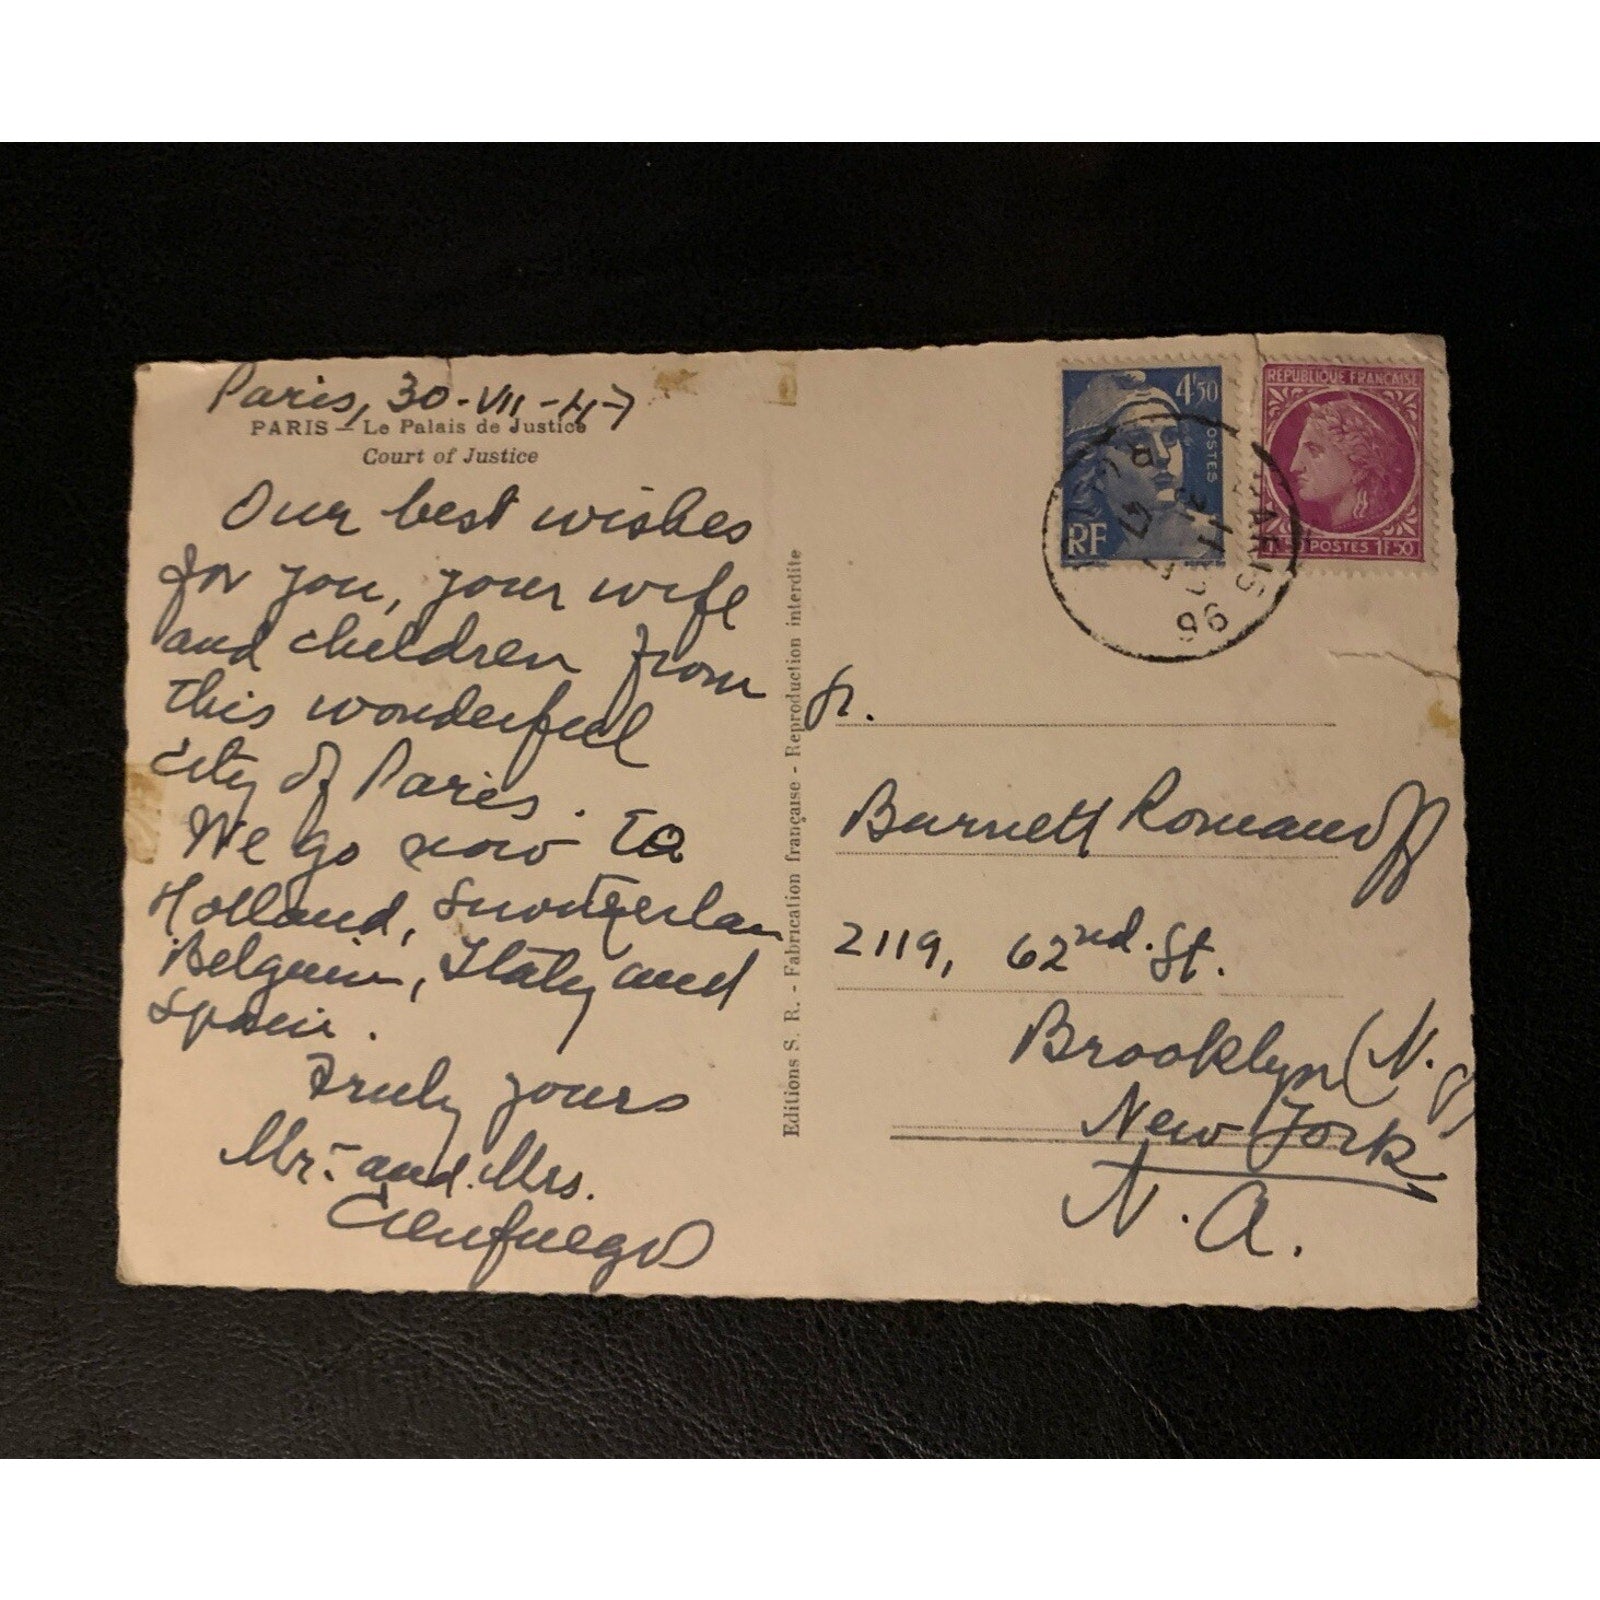 Paris, 30-VII-47
PARIS — Le Palais de Justice
Court of Justice
Our best wishes
for you, your wife
and children from
this wonderful
city of Paris.
We go now to
Holland, Switzerlan
Belguim, Italy and
Spain.
Truly yours
Mr. and Mrs.
Cienfuegos
Editions S. R. - Fabrication française - Reproduction interdite
4F50
POSTES
RF
REPUBLIQUE FRANÇAISE
1F50 POSTES 1F50
PARIS 96
Sr.
Burnett Romanoff
2119, 62nd. St.
Brooklyn (N. Y)
New York
N. A.